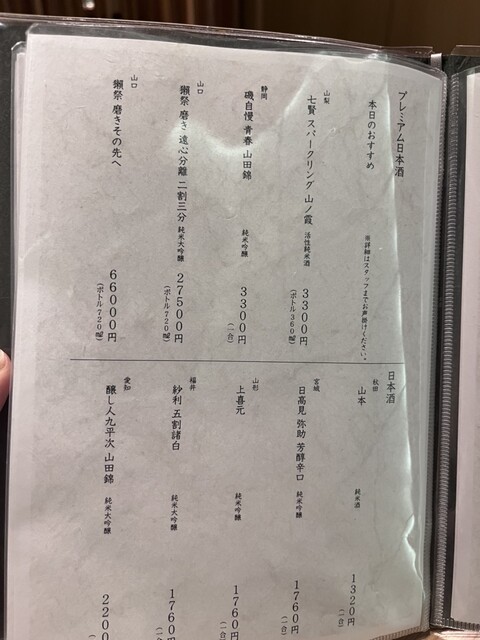 プレミアム日本酒
本日のおすすめ
※詳細はスタッフまでお声掛けください。
山梨
七賢 スパークリング 山ノ霞 活性純米酒 3300円
(ボトル360㎖)
静岡
磯自慢 青春 山田錦 純米吟醸 3300円
(一合)
山口
獺祭 磨き 遠心分離 二割三分 純米大吟醸 27500円
(ボトル720㎖)
山口
獺祭 磨きその先へ 66000円
(ボトル720㎖)
日本酒
秋田
山本 純米酒 1320円
(一合)
宮城
日高見 弥助 芳醇辛口 純米吟醸 1760円
(一合)
山形
上喜元 純米吟醸 1760円
(一合)
福井
紗利 五割諸白 純米大吟醸 1760円
(一合)
愛知
醸し人九平次 山田錦 純米大吟醸 2200